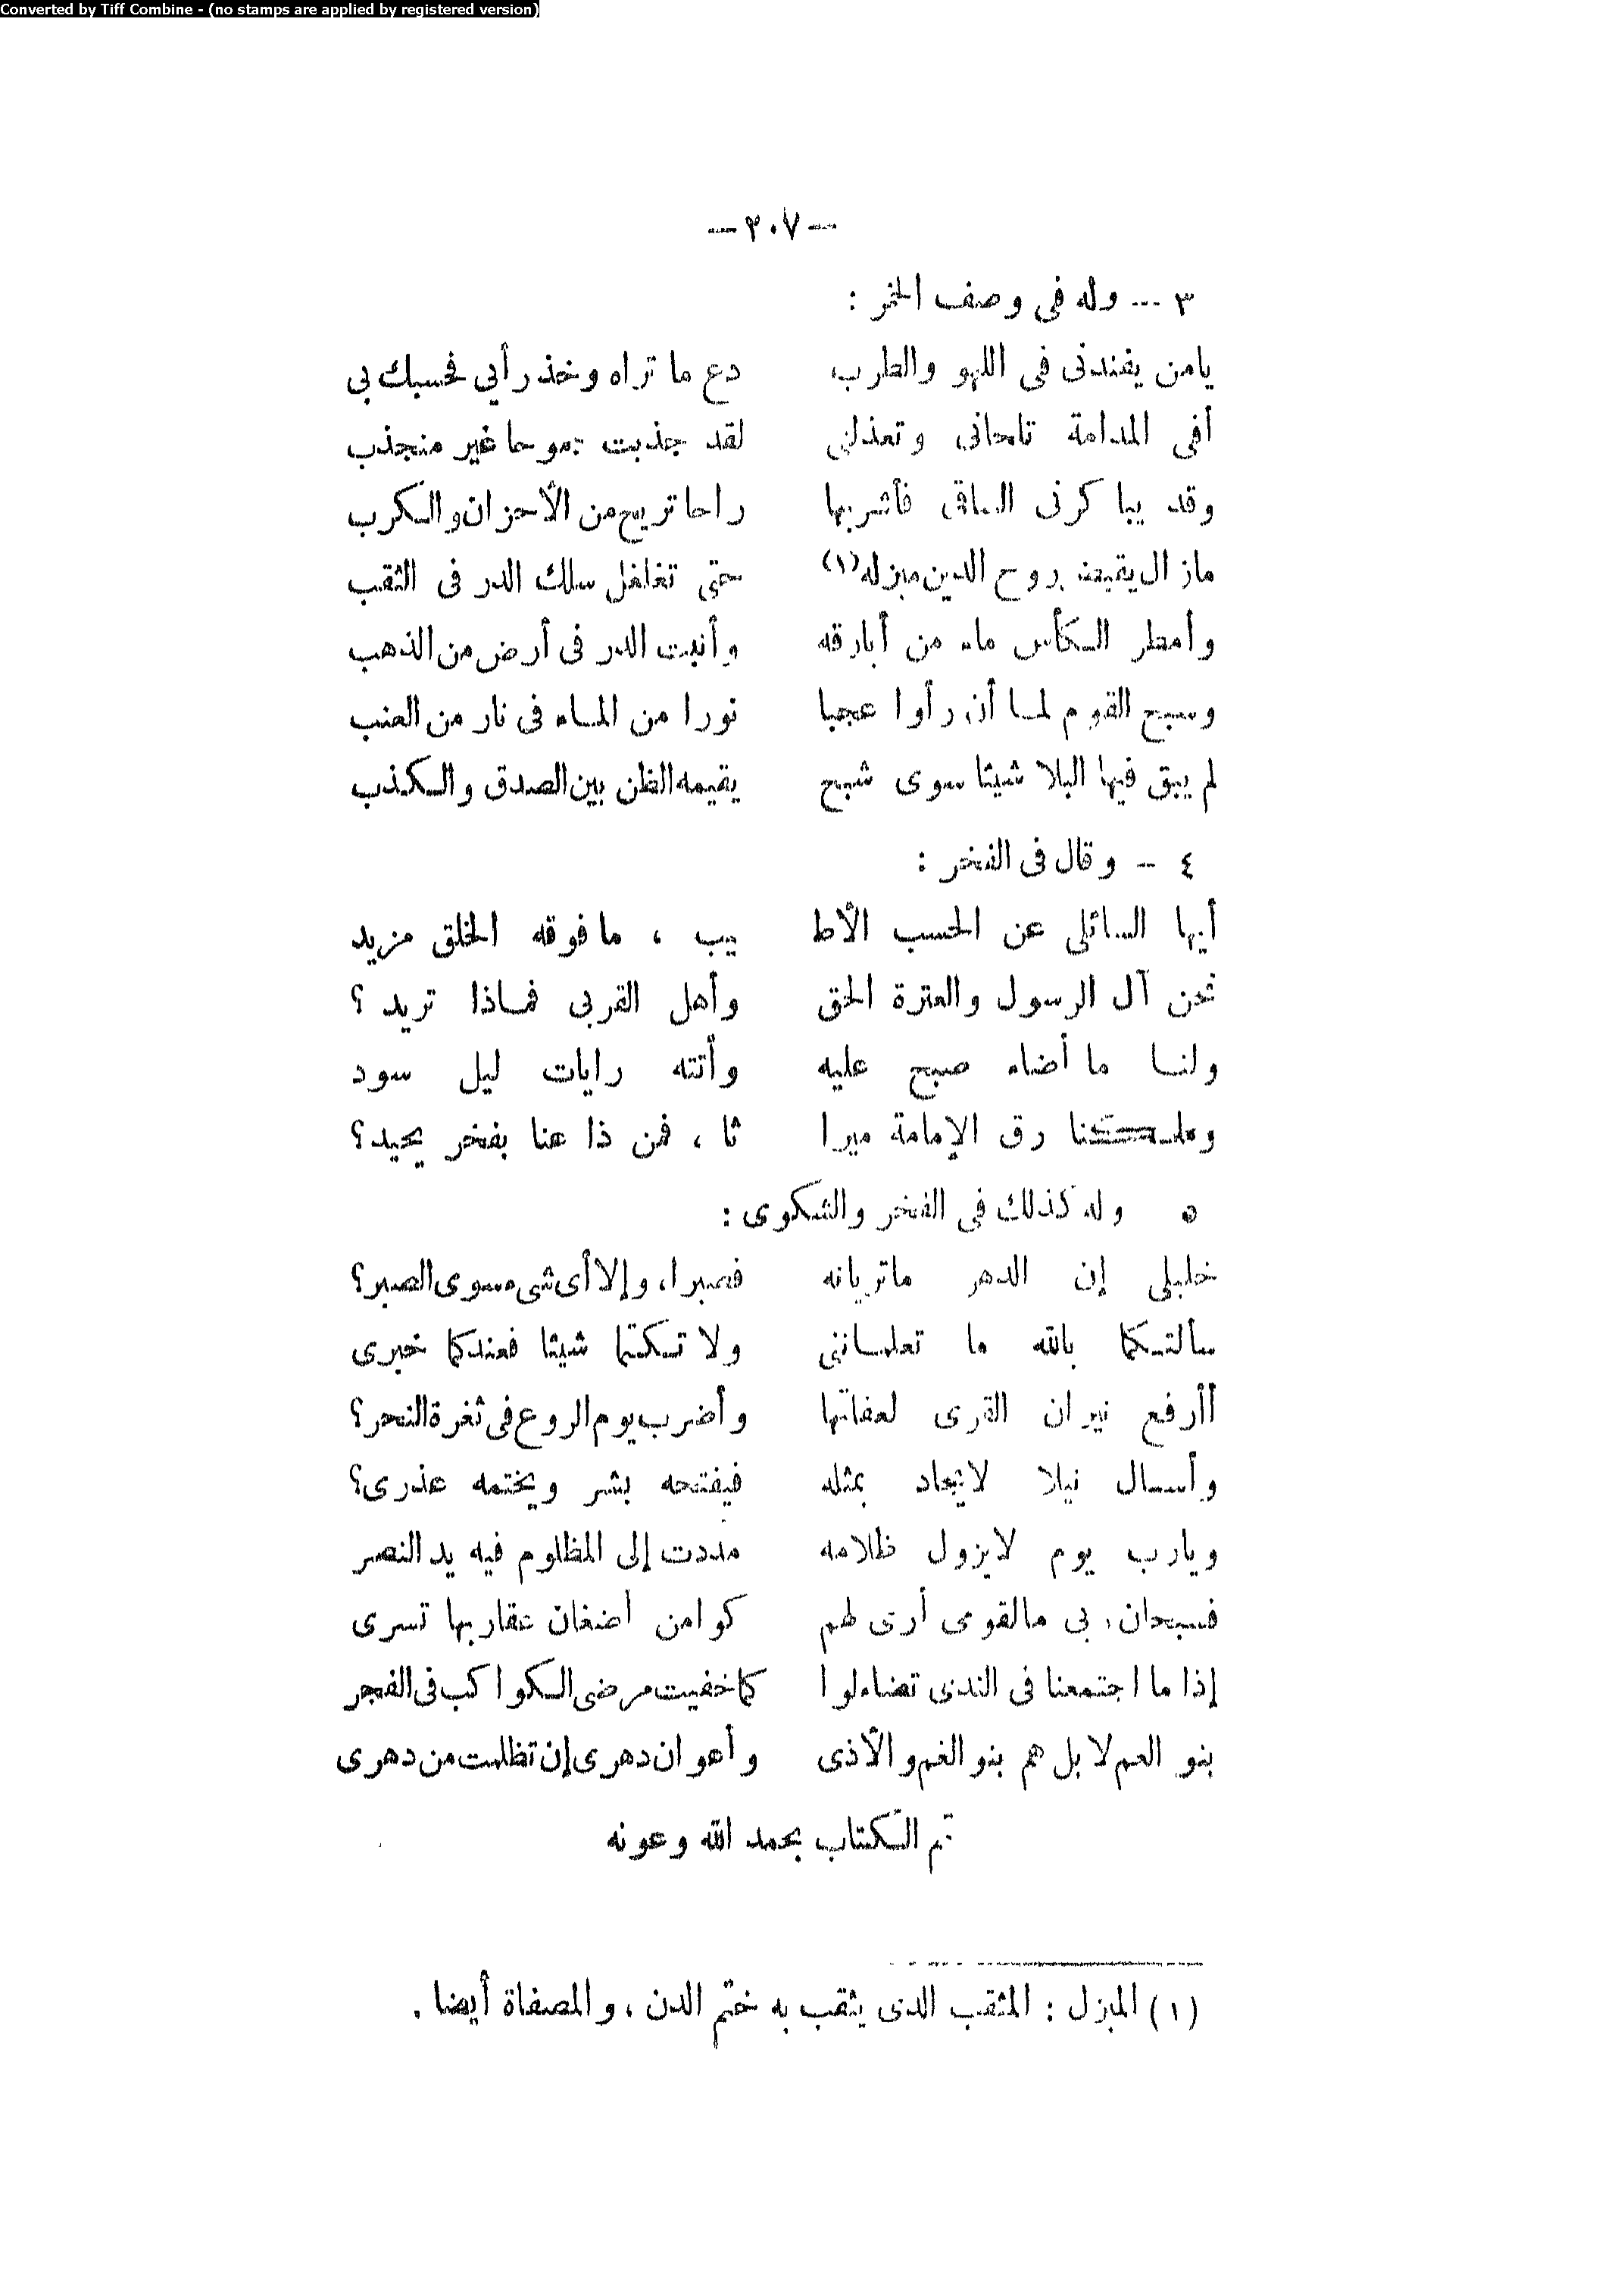 Converted by Tiff Combine - (no stamps are applied by registered version)
— ٢٠٧ —
٣ — وله فى وصف الخمر :
يامن يفندنى فى اللهو والطرب دع ما تراه وخذ رأيي فحسبك بى
أفى المدامة تلحانى وتعذلنى لقد جذبت جموحا غير منجذب
وقد يباكرنى الساقى فأشربها راحا تريح من الأحزان والكرب
مازال يقبض روح الدن مبزله (١) حتى تغلغل سلك الدر فى الثقب
وأمطر الكأس ماء من أبارقه وأنبت الدر فى أرض من الذهب
وسبح القوم لما أن رأوا عجبا نورا من الماء فى نار من العنب
لم يبق فيها البلا شيئا سوى شبح يقيمه الظن بين الصدق والكذب
٤ — وقال فى الفخر :
أيها السائلى عن الحسب الأط يب ، مافوقه الخلق مزيد
نحن آل الرسول والعترة الحق وأهل القربى فماذا تريد ؟
ولنا ما أضاء صبح عليه وأتته رايات ليل سود
وملكنا رق الإمامة ميرا ثا ، فمن ذا عنا بفخر يحيد ؟
٥ وله كذلك فى الفخر والشكوى :
خليلى إن الدهر ماتريانه فصبرا ، وإلا أى شىء سوى الصبر ؟
سألتكما بالله ما تعلماننى ولا تكتما شيئا فعندكما خبرى
أأرفع نيران القرى لعفاتها وأضرب يوم الروع فى ثغرة النحر ؟
وأسال نيلا لايجاد بمثله فيفتحه بشر ويختمه عذرى ؟
ويارب يوم لايزول ظلامه مددت إلى المظلوم فيه يد النصر
فسبحان ربى مالقومى أرى لهم كوامن أضغان عقاربها تسرى
إذا ما اجتمعنا فى الندى تضاءلوا كما خفيت مرضى الكواكب فى الفجر
بنو العم لا بل هم بنو الغم والأذى وأعوان دهرى إن تظلمت من دهرى
تم الكتاب بحمد الله وعونه
(١) المبزل : المثقب الذى يثقب به ختم الدن ، والمصفاة أيضا .